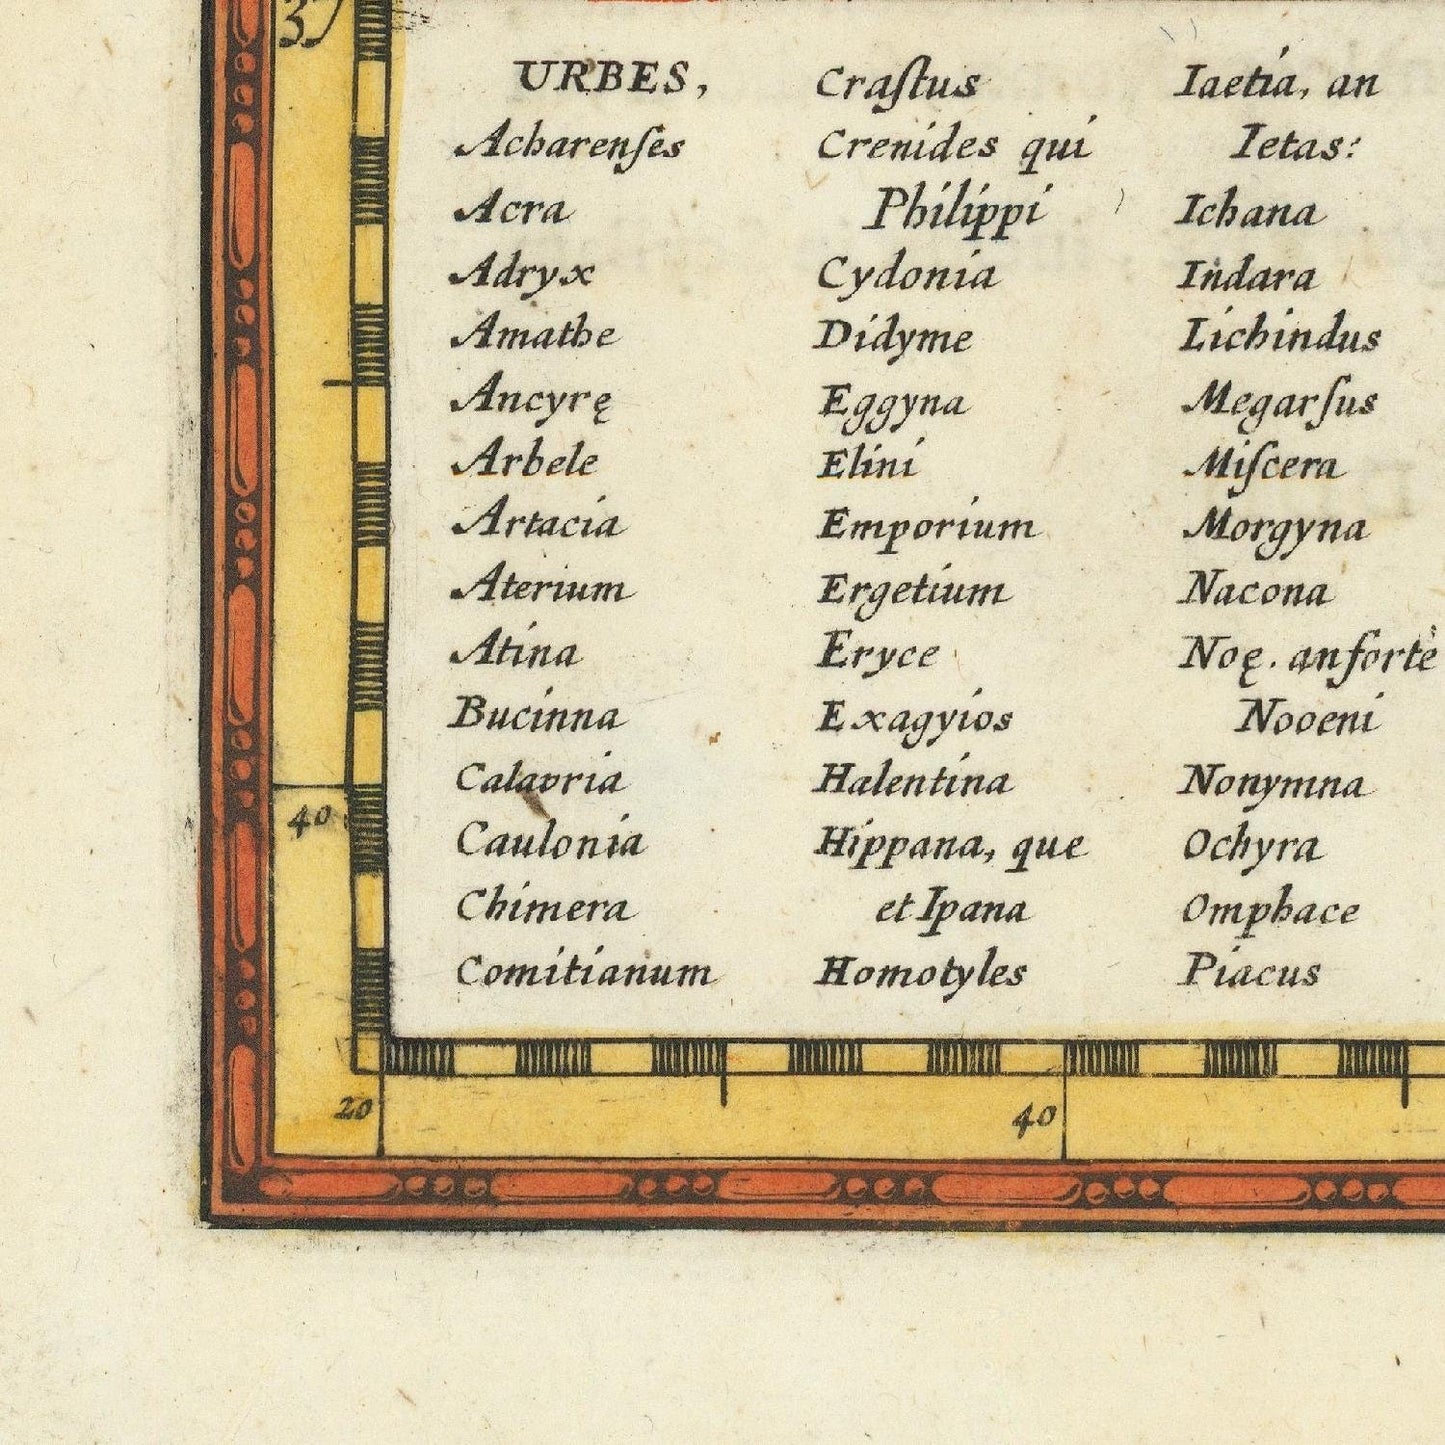 37
URBES,
Acharenſes
Acra
Adryx
Amathe
Ancyrę
Arbele
Artacia
Aterium
Atina
Bucinna
Calavria
Caulonia
Chimera
Comitianum
Craſtus
Crenides qui
Philippi
Cydonia
Didyme
Eggyna
Elini
Emporium
Ergetium
Eryce
Exagyios
Halentina
Hippana, que
et Ipana
Homotyles
Iaetia, an
Ietas:
Ichana
Indara
Lichindus
Megarſus
Miſcera
Morgyna
Nacona
Noę. an fortè
Nooeni
Nonymna
Ochyra
Omphace
Piacus
40
20
40